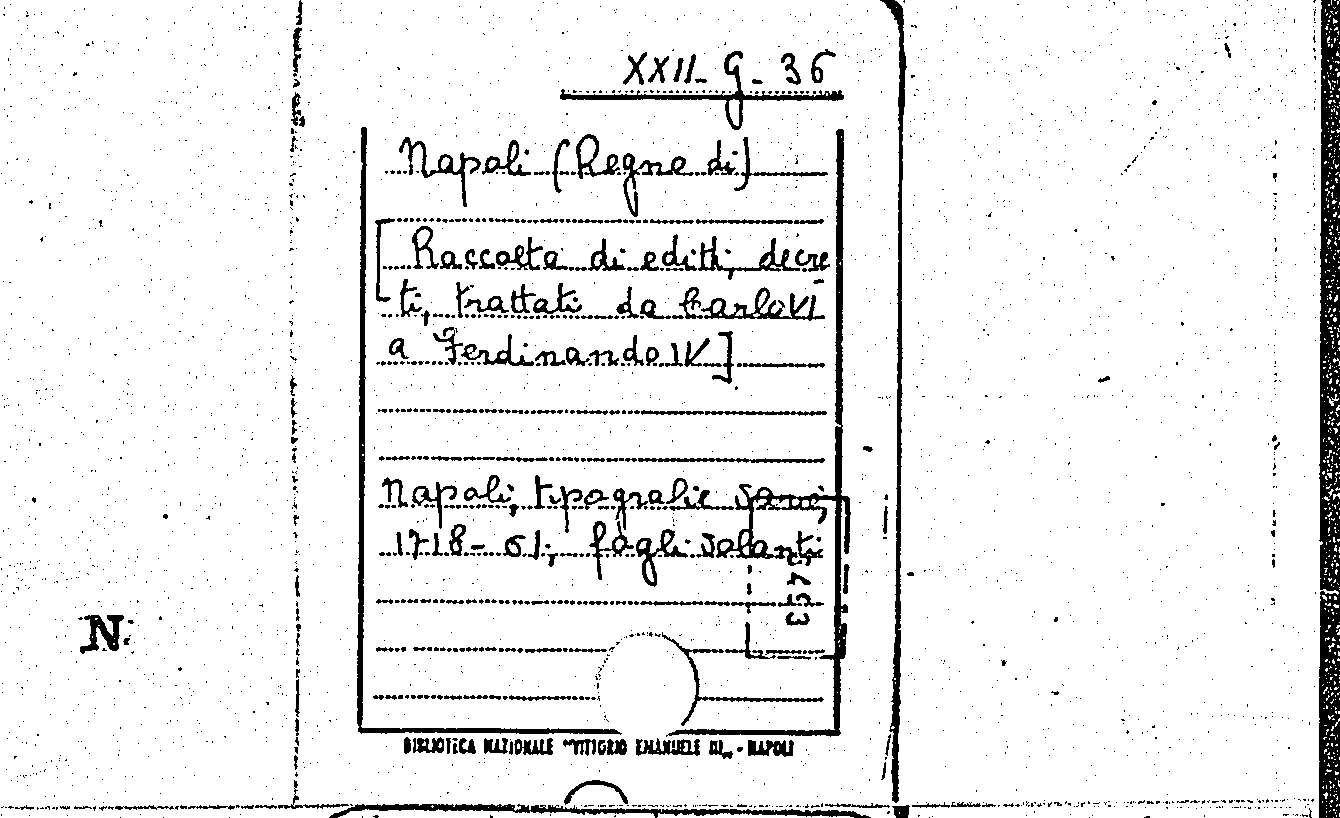 XXII - G - 36
Napoli (Regno di)
[Raccolta di editti, decre
ti, trattati da Carlo VI
a Ferdinando IV]
Napoli, tipografie varie,
1718 - 61; fogli volanti
N.
BIBLIOTECA NAZIONALE "VITTORIO EMANUELE III" - NAPOLI